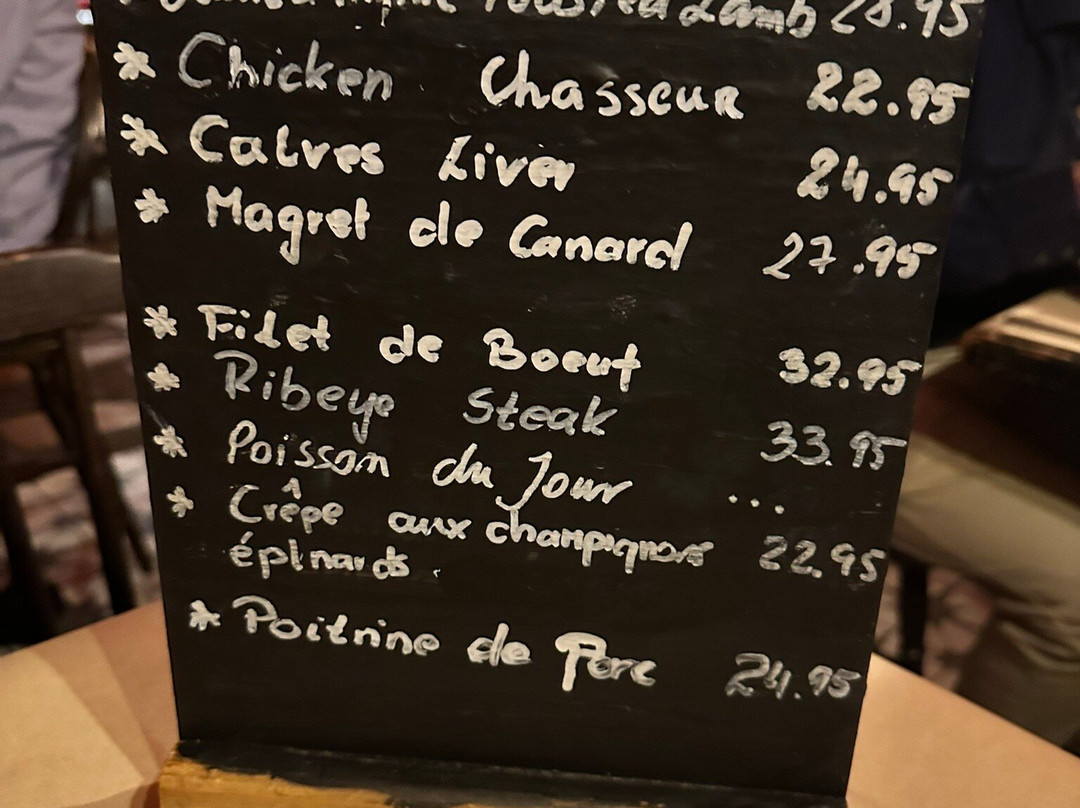 Roasted Lamb 28.95
* Chicken Chasseur 22.95
* Calves Liver 24.95
* Magret de Canard 27.95
* Filet de Boeuf 32.95
* Ribeye Steak 33.95
* Poisson du Jour ...
* Crêpe aux champignons 22.95
épinards.
* Poitrine de Porc 24.95